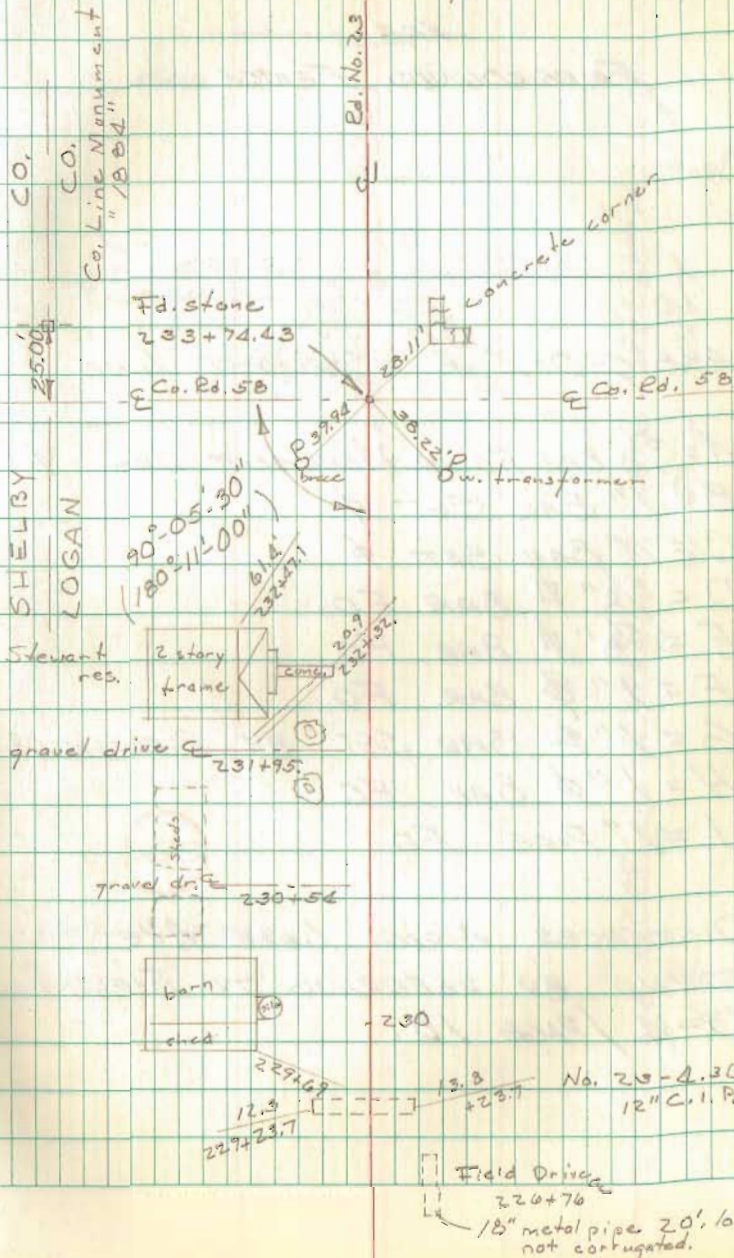 SHELBY CO.
LOGAN CO.
25.00'
Co. Line Monument
"1884"
Rd. No. 23
℄
concrete corner
Fd. stone
233+74.43
28.11'
℄ Co. Rd. 58
℄ Co. Rd. 58
39.94
38.22'
P
brace
P
w. transformer
90°-05'-30"
(180°-11'-00")
61.4'
232+47.1
Stewart
res.
2 story
frame
conc.
20.9
232+32.
gravel drive ℄
231+95.
sheds
gravel dr. ℄
230+54
barn
shed
230
229+69
12.3
229+23.7
13.8
+23.7
No. 23-4.30
12" C.I.P.
Field Drive ℄
226+76
18" metal pipe 20'
not corrugated.